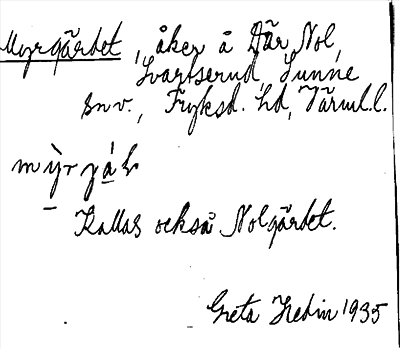 Myrgärdet, åker å Där Nol,
Svartserud, Sunne
snv., Fryksd. hd, Värml. l.
Kallas också Nolgärdet.
Greta Hedin 1935